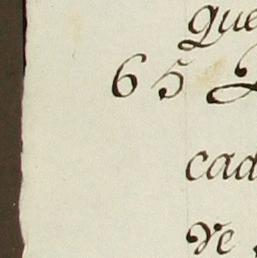 que
65
cad
ve